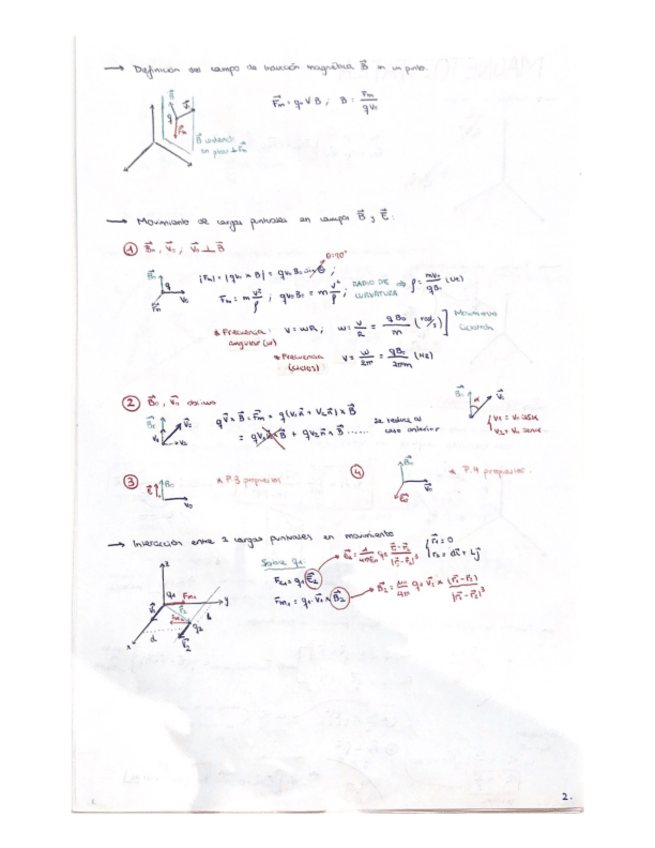 → Definición del campo de inducción magnética B⃗ en un punto.
F⃗m = q·V B ; B = Fm / qV₀
B⃗ contenido
en plano ⊥ F⃗m
→ Movimiento de cargas puntuales en campos B⃗ y E⃗:
① B⃗₀, V⃗₀, V⃗₀ ⊥ B⃗
θ=90°
|Fm| = |qV₀ × B| = qV₀B₀ sinθ ;
Fm = m v²/ρ ; qV₀B₀ = m v²/ρ ; RADIO DE CURVATURA → ρ = mV₀/qB₀ (m)
* Frecuencia angular (ω) : V = ωR ; ω = V/R = qB₀/m (rad/s)
Movimiento
* Frecuencia (ciclos) ν = ω/2π = qB₀/2πm (Hz)
② B⃗₀, V⃗₀ oblicuo
qV⃗ × B⃗ = F⃗m = q(V₁n⃗ + V₂n⃗) × B⃗
= qV₁n⃗×B⃗ + qV₂n⃗ × B⃗ ......
se reduce al
caso anterior
V₁ = V₀ cosα
V₂ = V₀ senα
③ * P.3 propuestos
④ * P.4 propuestos.
→ Interacción entre 2 cargas puntuales en movimiento
Sobre q₁:
r⃗₁ = 0